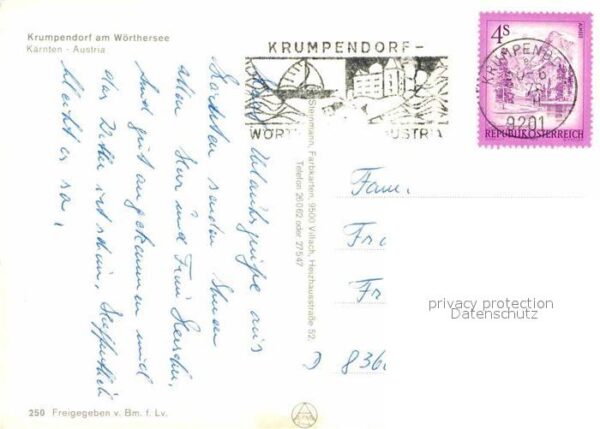 Krumpendorf am Wörthersee
Kärnten - Austria
KRUMPENDORF-
WÖRTH AUSTRIA
4s
ALMSEE
REPUBLIK ÖSTERREICH
KRUMPENDORF
9201
Urlaubsgrüße aus
Kärnten senden Ihnen
Herr und Frau
Sind gut angekommen und
das Wetter ist schön, Hoffentlich
bleibt es so,
Steinmann, Farbkarten, 9500 Villach, Heizhausstraße 52,
Telefon 26062 oder 27547
Fam.
Fr
D 836
privacy protection
Datenschutz
250 Freigegeben v. Bm. f. Lv.